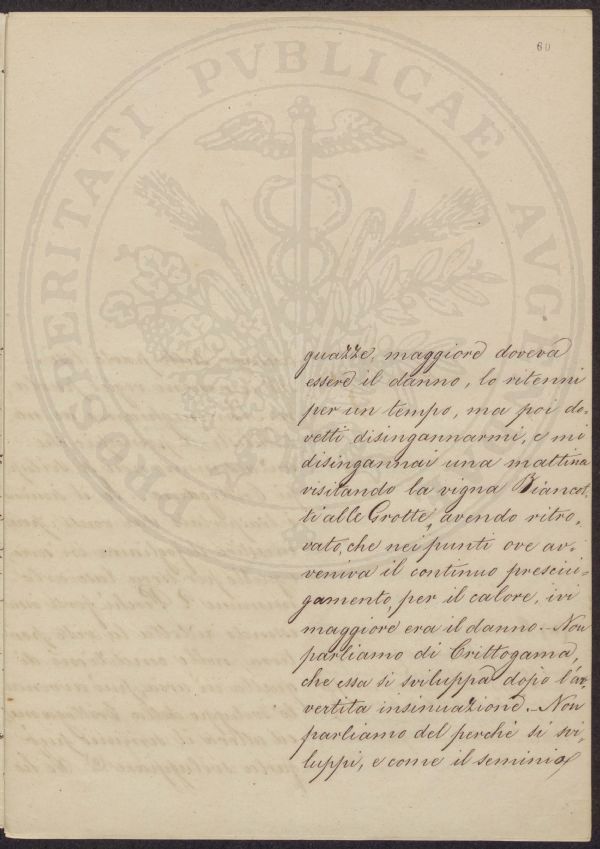 60
PROSPERITATI PVBLICAE AVGENDAE
guazze, maggiore doveva
essere il danno, lo ritenni
per un tempo, ma poi do-
vetti disingannarmi, e mi
disingannai una mattina
visitando la vigna Biancot-
ti alle Grotte, avendo ritro-
vato, che nei punti ove av-
veniva il continuo presciu-
gamento, per il calore, ivi
maggiore era il danno. - Non
parliamo di Crittogama,
che essa si sviluppa dopo l'av-
vertita insinuazione. - Non
parliamo del perchè si svi-
luppi, e come il semini